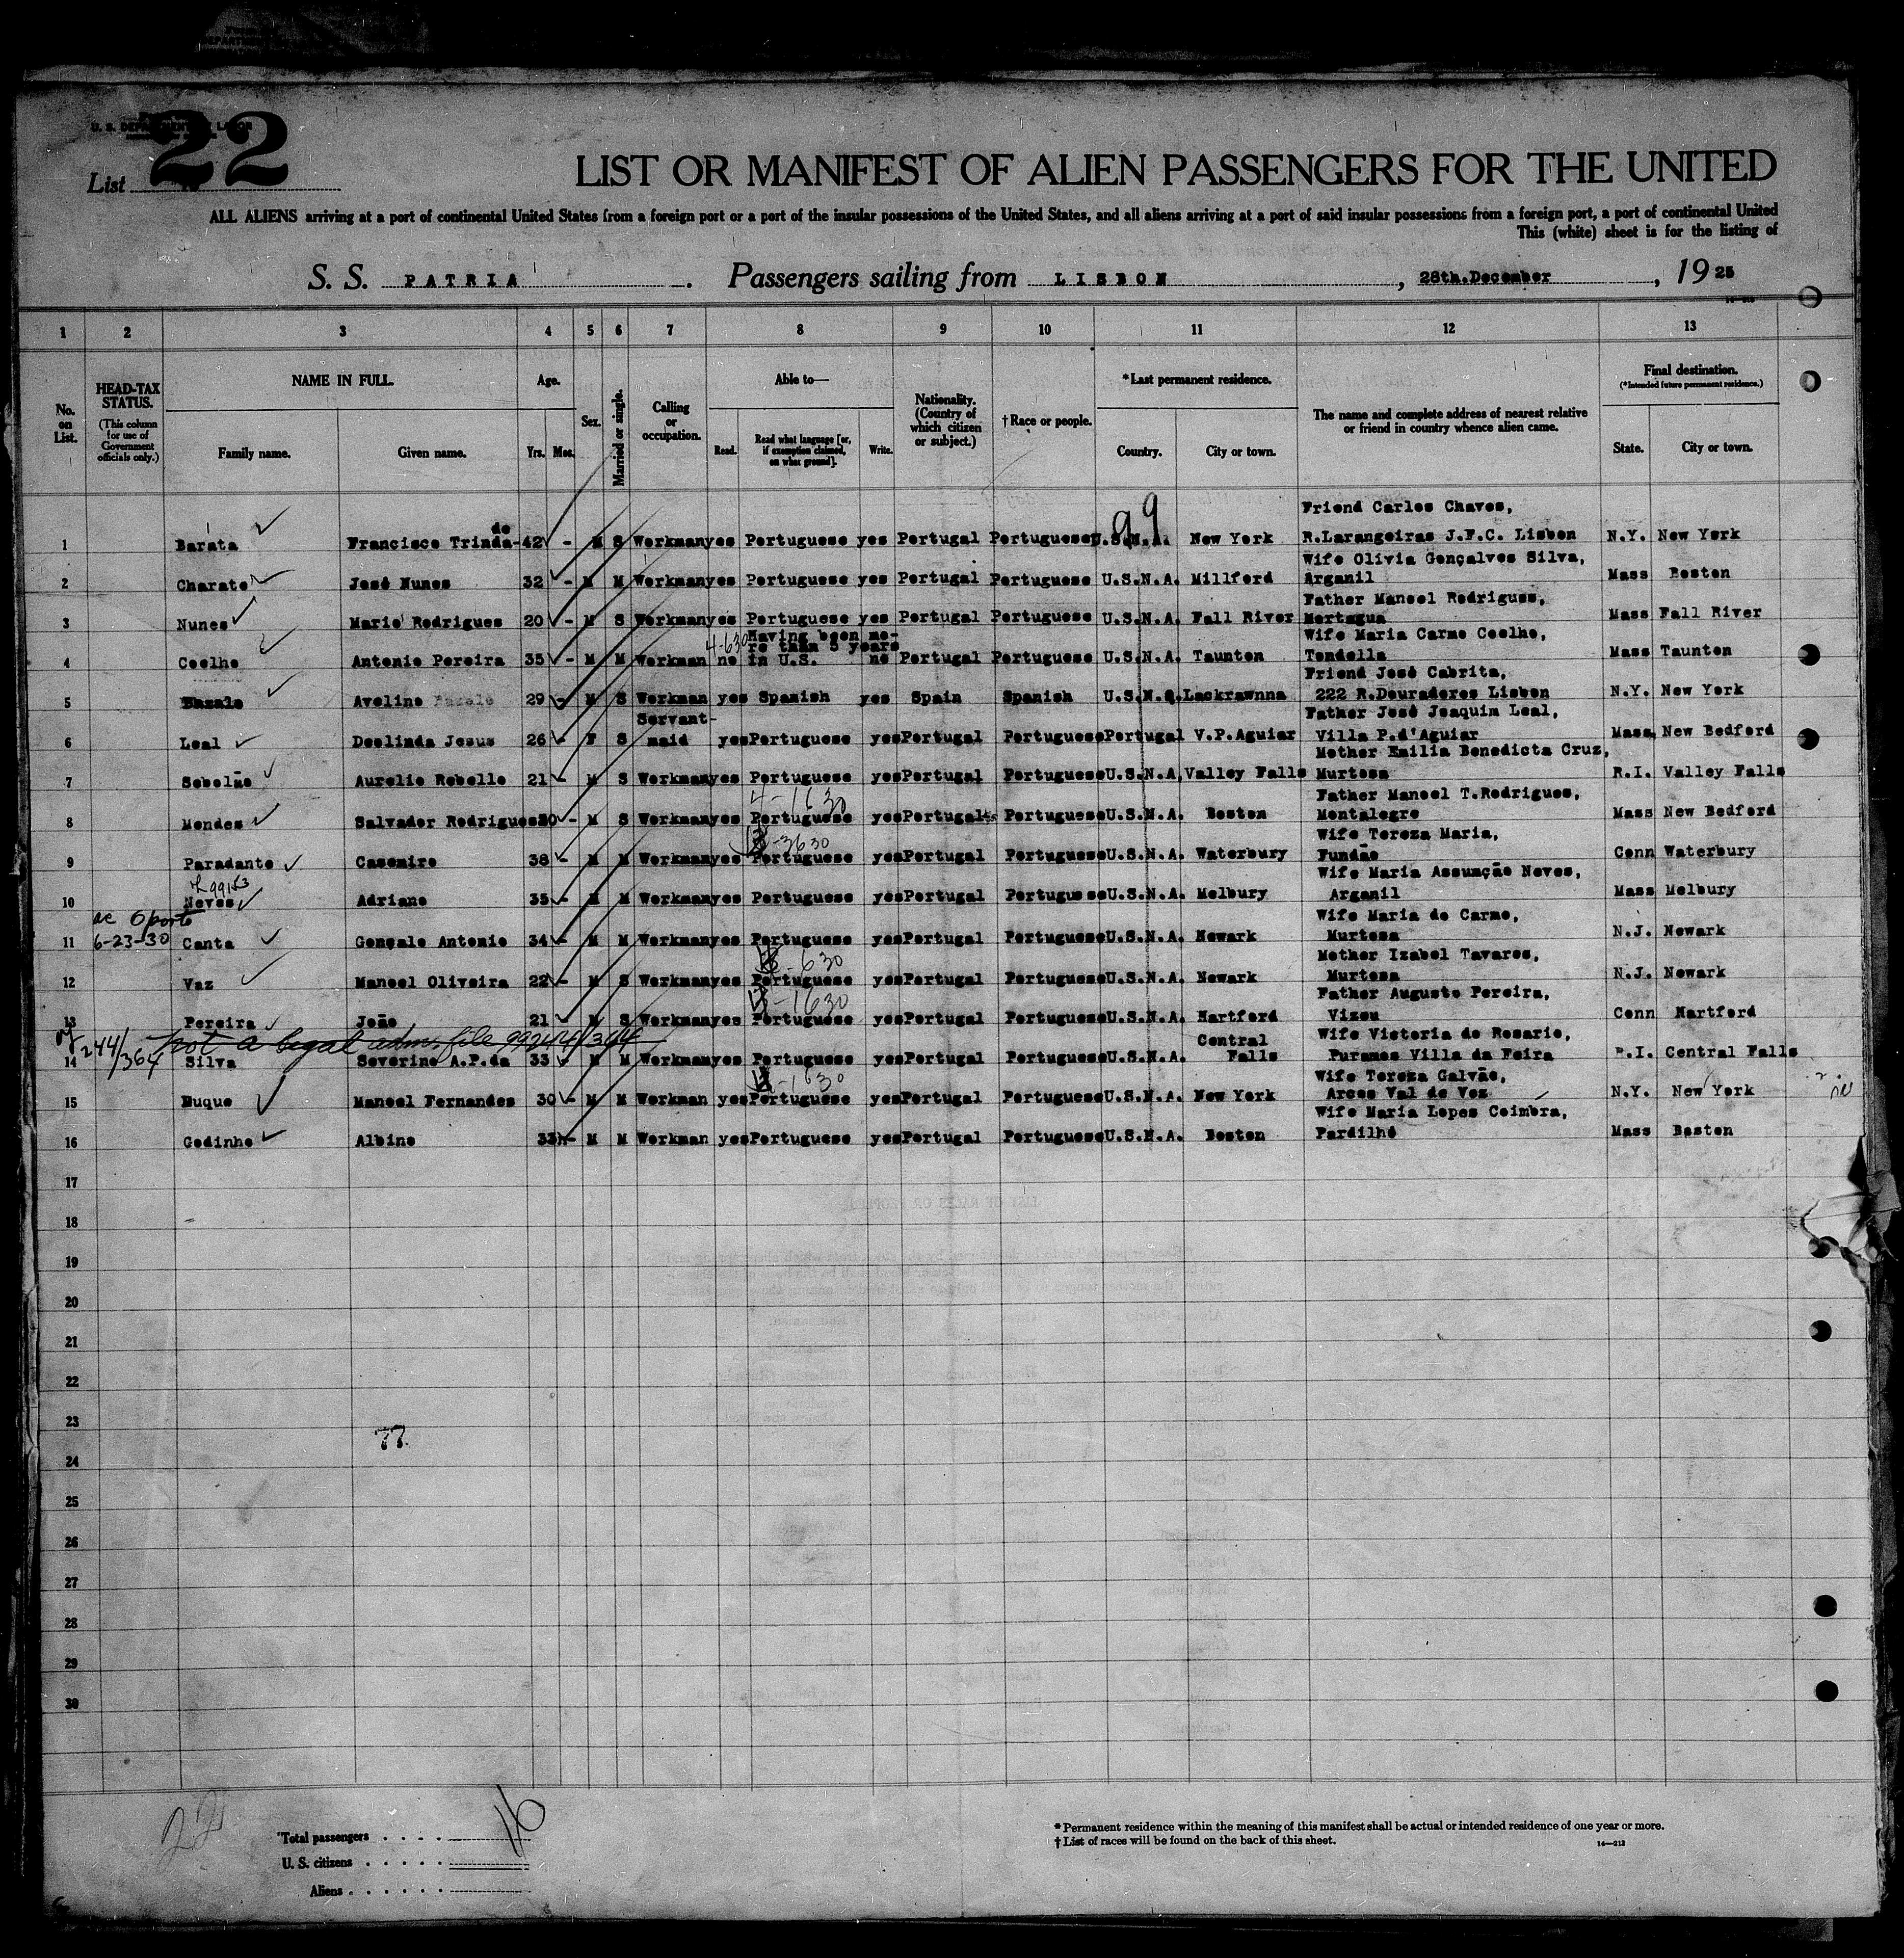 22
List
LIST OR MANIFEST OF ALIEN PASSENGERS FOR THE UNITED
ALL ALIENS arriving at a port of continental United States from a foreign port or a port of the insular possessions of the United States, and all aliens arriving at a port of said insular possessions from a foreign port, a port of continental United
This (white) sheet is for the listing of
S. S. PATRIA. Passengers sailing from LISBON, 28th.December, 1925
1 2 3 4 5 6 7 8 9 10 11 12 13
No. on List. HEAD-TAX STATUS. (This column for use of Government officials only.) NAME IN FULL. Family name. Given name. Age. Yrs. Mos. Sex. Married or single. Calling or occupation. Able to— Read. Read what language [or, if exemption claimed, on what ground]. Write. Nationality. (Country of which citizen or subject.) †Race or people. *Last permanent residence. Country. City or town. The name and complete address of nearest relative or friend in country whence alien came. Final destination. (*Intended future permanent residence.) State. City or town.
99
Friend Carlos Chaves,
de
1 Barata Francisco Trinda- 42 - M S Workman yes Portuguese yes Portugal Portuguese U.S.N.A. New York R.Larangeiras J.F.C. Lisbon N.Y. New York
Wife Olivia Gonçalves Silva,
2 Charate José Nunes 32 - M M Workman yes Portuguese yes Portugal Portuguese U.S.N.A. Millford Arganil Mass Boston
Father Manoel Rodrigues,
3 Nunes Mario Rodrigues 20 - M S Workman yes Portuguese yes Portugal Portuguese U.S.N.A. Fall River Mortagua Mass Fall River
4-630 Having been mo-
re than 5 years Wife Maria Carmo Coelho,
4 Coelho Antonio Pereira 35 - M M Workman no in U.S. no Portugal Portuguese U.S.N.A. Taunton Tondella Mass Taunton
Friend José Cabrita,
5 Avelino 29 - M S Workman yes Spanish yes Spain Spanish U.S.N.A. Lackrawnna 222 R.Douradores Lisbon N.Y. New York
Servant- Father José Joaquim Leal,
6 Leal Deolinda Jesus 26 - F S maid yes Portuguese yes Portugal Portuguese Portugal V.P.Aguiar Villa P.d'Aguiar Mass New Bedford
Mother Emilia Benedicta Cruz,
7 Sebolão Aurelio Rebello 21 - M S Workman yes Portuguese yes Portugal Portuguese U.S.N.A. Valley Falls Murtosa R.I. Valley Falls
4-1630 Father Manoel T.Rodrigues,
8 Mendes Salvador Rodrigues 30 - M S Workman yes Portuguese yes Portugal Portuguese U.S.N.A. Boston Montalegre Mass New Bedford
-3630 Wife Tereza Maria,
9 Paradante Casemiro 38 - M M Workman yes Portuguese yes Portugal Portuguese U.S.N.A. Waterbury Fundão Conn Waterbury
Wife Maria Assumção Neves,
10 Neves Adriano 35 - M M Workman yes Portuguese yes Portugal Portuguese U.S.N.A. Melbury Arganil Mass Melbury
Oporto
6-23-30
Wife Maria do Carmo,
11 Canta Gonçalo Antonio 34 - M M Workman yes Portuguese yes Portugal Portuguese U.S.N.A. Newark Murtosa N.J. Newark
-630 Mother Izabel Tavares,
12 Vaz Manoel Oliveira 22 - M S Workman yes Portuguese yes Portugal Portuguese U.S.N.A. Newark Murtosa N.J. Newark
-1630 Father Augusto Pereira,
13 Pereira João 21 - M S Workman yes Portuguese yes Portugal Portuguese U.S.N.A. Hartford Vizeu Conn Hartford
244/364 not a legal adm. file 99244/364
Central Wife Victoria do Rosario,
14 Silva Severino A.P.da 33 M M Workman yes Portuguese yes Portugal Portuguese U.S.N.A. Falls Puramos Villa da Feira R.I. Central Falls
-1630 Wife Tereza Galvão,
15 Duque Manoel Fernandes 30 - M M Workman yes Portuguese yes Portugal Portuguese U.S.N.A. New York Arcos Val de Vez N.Y. New York
Wife Maria Lopes Coimbra,
16 Godinho Albino 33 - M M Workman yes Portuguese yes Portugal Portuguese U.S.N.A. Boston Pardilhó Mass Boston
17
18
19
20
21
22
23
77.
24
25
26
27
28
29
30
22
Total passengers . . . . 16
U. S. citizens . . . . .
Aliens . . . . . .
* Permanent residence within the meaning of this manifest shall be actual or intended residence of one year or more.
† List of races will be found on the back of this sheet. 14—212